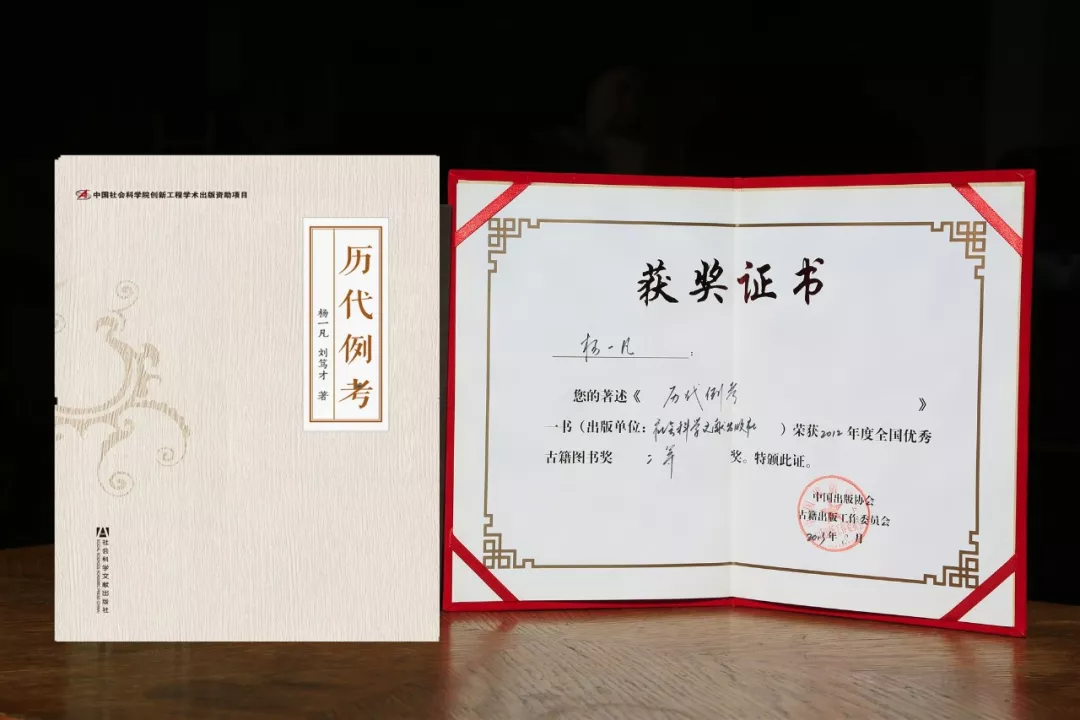 中国社会科学院创新工程学术出版资助项目
历代例考
杨一凡 刘笃才 著
社会科学文献出版社
获奖证书
杨一凡:
您的著述《 历代例考 》
一书(出版单位:社会科学文献出版社 )荣获2012年度全国优秀
古籍图书奖 二等 奖。特颁此证。
中国出版协会
古籍出版工作委员会
2013年 月